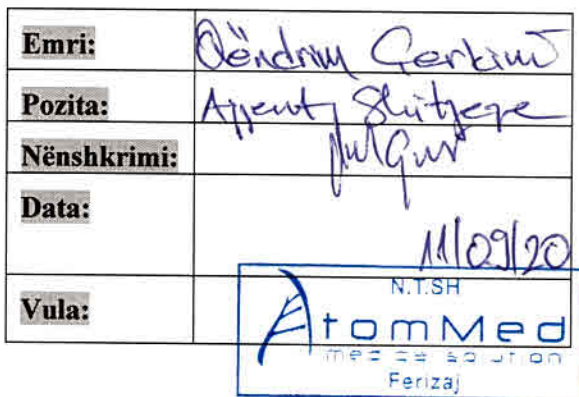 Emri: Qëndrim Qerkini
Pozita: Agjent Shitjeje
Nënshkrimi:
Data: 11/09/20
Vula:
N.T.SH
AtomMed
medical solution
Ferizaj